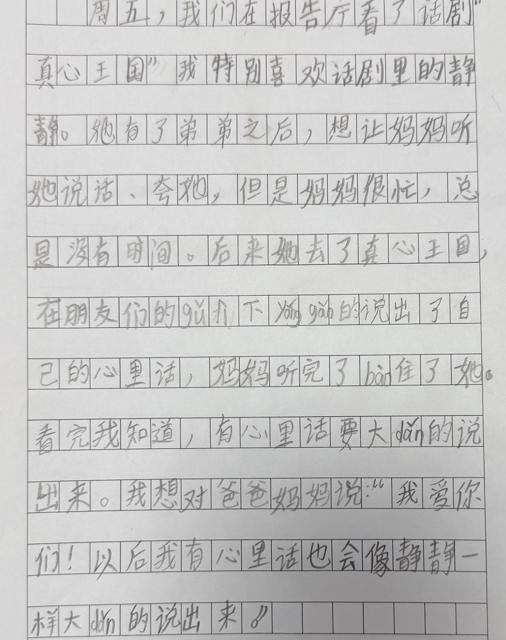 周五，我们在报告厅看了话剧“
真心王国”我特别喜欢话剧里的静
静。她有了弟弟之后，想让妈妈听
她说话、夸她，但是妈妈很忙，总
是没有时间。后来她去了真心王国，
在朋友们的gǔ lì下yǒng gǎn的说出了自
己的心里话，妈妈听完了bào住了她。
看完我知道，有心里话要大dǎn的说
出来。我想对爸爸妈妈说：“我爱你
们！以后我有心里话也会像静静一
样大dǎn的说出来。”